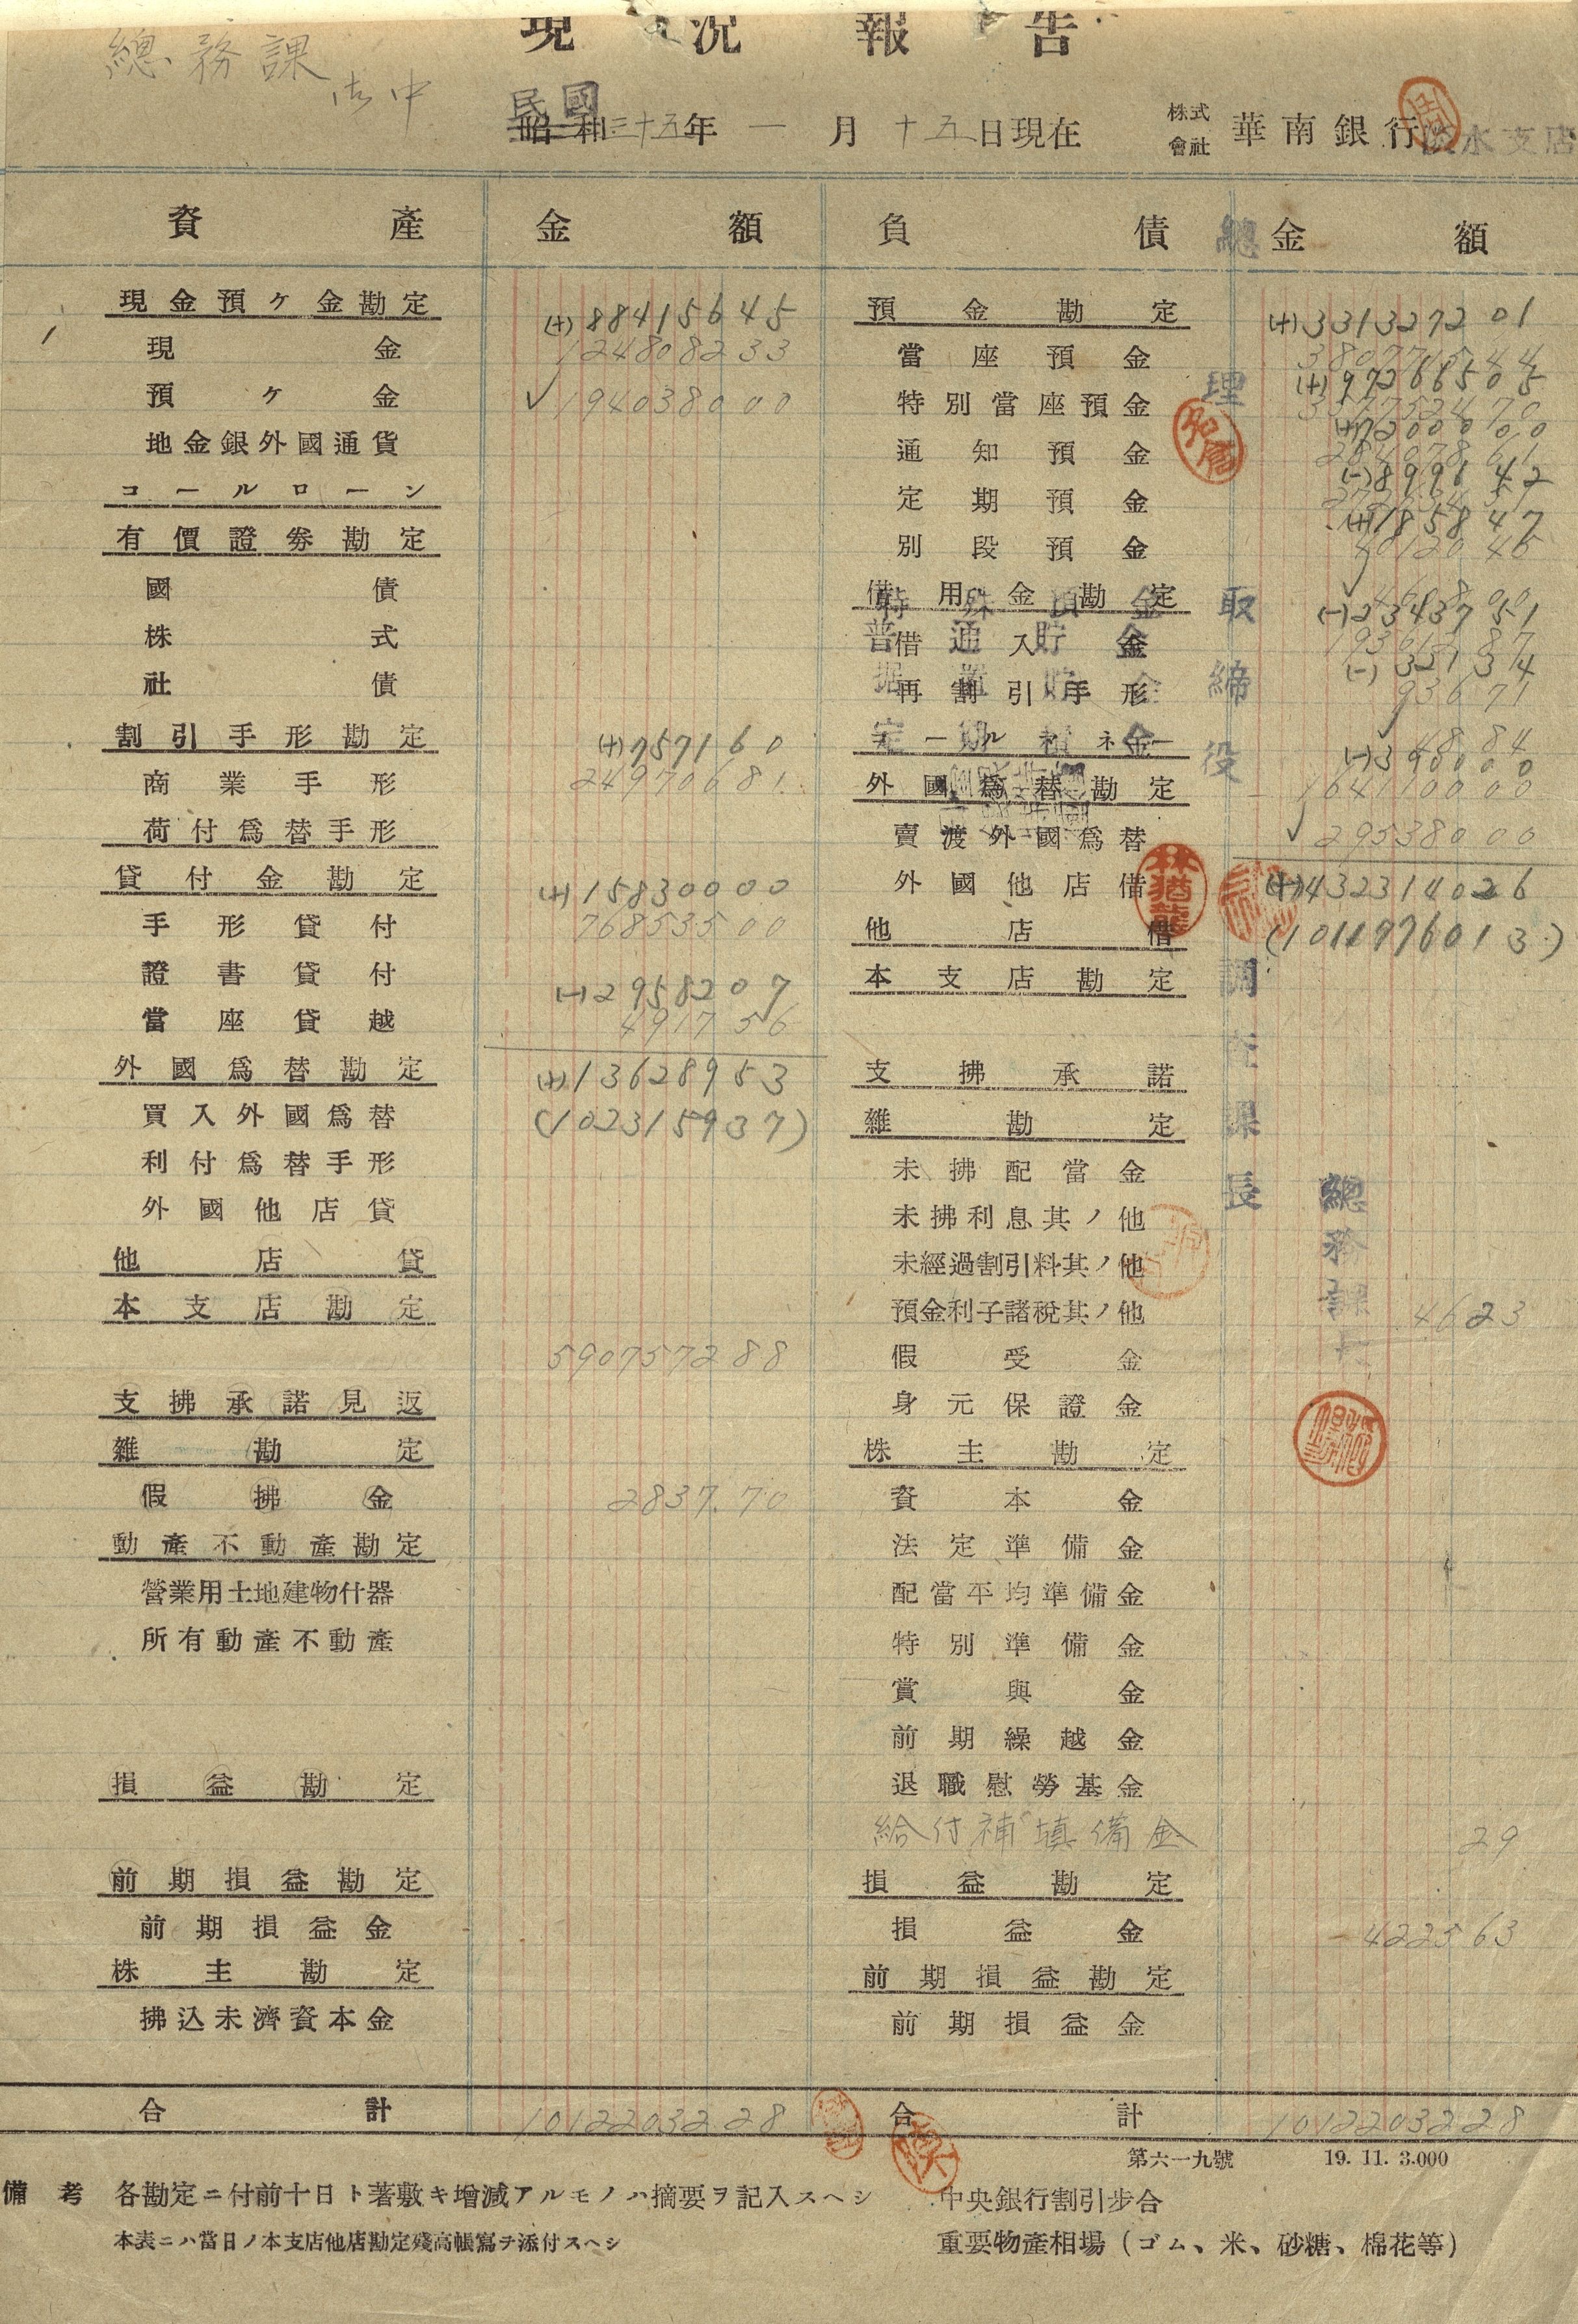 現況報告
總務課
御中
民國
昭和三十五年一月十五日現在
株式會社 華南銀行淡水支店
資產 金額 負債 金額
現金預ケ金勘定 (+)88415645
現金 124808233
預ケ金 ✓194038000
地金銀外國通貨
コールローン
有價證券勘定
國債
株式
社債
割引手形勘定 (+)757160
商業手形 24970681
荷付爲替手形
貸付金勘定 (+)15830000
手形貸付 76853500
證書貸付
當座貸越 (-)2958207
491756
外國爲替勘定 (+)13628953
買入外國爲替 (102315937)
利付爲替手形
外國他店貸
他店貸
本支店勘定
590757288
支拂承諾見返
雜勘定
假拂金 2837.70
動產不動產勘定
營業用土地建物什器
所有動產不動產
損益勘定
前期損益勘定
前期損益金
株主勘定
拂込未濟資本金
合計 1012203228
預金勘定 (+)331327201
當座預金
特別當座預金 (+)97266505
通知預金 (+)7200000
定期預金 (-)899642
別段預金 (+)185847
4012046
借用金勘定
特殊預金
(-)2343751
借入金
普通貯金
(-)32134
再割引手形
93671
据置貯金
コールマネー
定期積金
4884
(-)390000
外國爲替勘定 164110000
賣渡外國爲替 ✓29538000
外國他店借 (+)432314026
他店借 (1011976013)
本支店勘定
支拂承諾
雜勘定
未拂配當金
未拂利息其ノ他
未經過割引料其ノ他
預金利子諸稅其ノ他 4623
假受金
身元保證金
株主勘定
資本金
法定準備金
配當平均準備金
特別準備金
賞與金
前期繰越金
退職慰勞基金
給付補塡備金 29
損益勘定
損益金 422563
前期損益勘定
前期損益金
合計 1012203228
總理
取締役
調査課長
總務課
林猶龍
第六一九號 19. 11. 3.000
備考 各勘定ニ付前十日ト著敷キ增減アルモノハ摘要ヲ記入スヘシ
本表ニハ當日ノ本支店他店勘定殘高帳寫ヲ添付スヘシ
中央銀行割引步合
重要物產相場(ゴム、米、砂糖、棉花等)